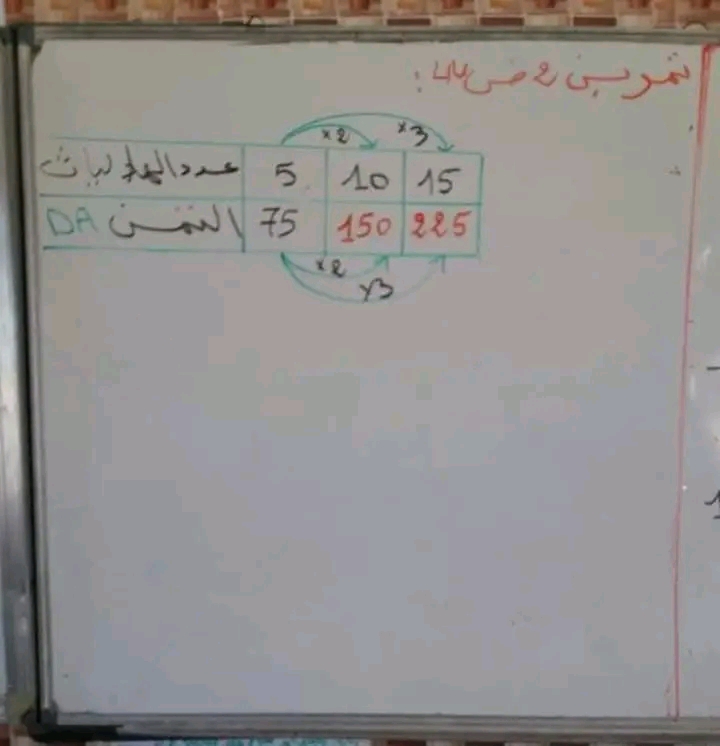 تمرين 2 ص 44:
×2 ×3
عدد الحلويات 5 10 15
الثمن DA 75 150 225
×2
×3